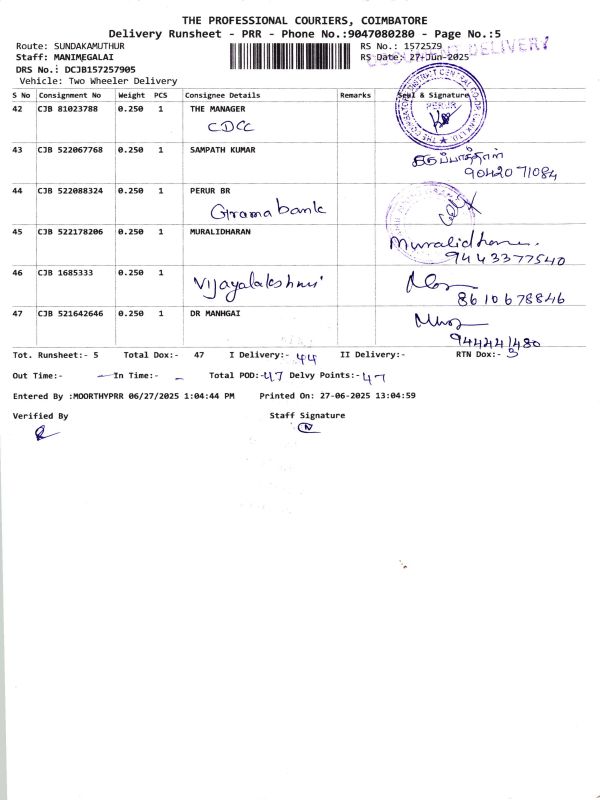 THE PROFESSIONAL COURIERS, COIMBATORE
Delivery Runsheet - PRR - Phone No.:9047080280 - Page No.:5
Route: SUNDAKAMUTHUR
RS No.: 1572579
DELIVERY
Staff: MANIMEGALAI
RS Date: 27-Jun-2025
DRS No.: DCJB157257905
Vehicle: Two Wheeler Delivery
S No Consignment No Weight PCS Consignee Details Remarks Seal & Signature
42 CJB 81023788 0.250 1 THE MANAGER
CDCC
PERUR
43 CJB 522067768 0.250 1 SAMPATH KUMAR
9042071084
44 CJB 522088324 0.250 1 PERUR BR
Grama bank
45 CJB 522178206 0.250 1 MURALIDHARAN
Muralidharan.
9443377540
46 CJB 1685333 0.250 1
Vijayalakshmi
8610678846
47 CJB 521642646 0.250 1 DR MANHGAI
944441480
Tot. Runsheet:- 5 Total Dox:- 47 I Delivery:- 44 II Delivery:- RTN Dox:- 3
Out Time:- — In Time:- - Total POD:-47 Delvy Points:-47
Entered By :MOORTHYPRR 06/27/2025 1:04:44 PM Printed On: 27-06-2025 13:04:59
Verified By Staff Signature